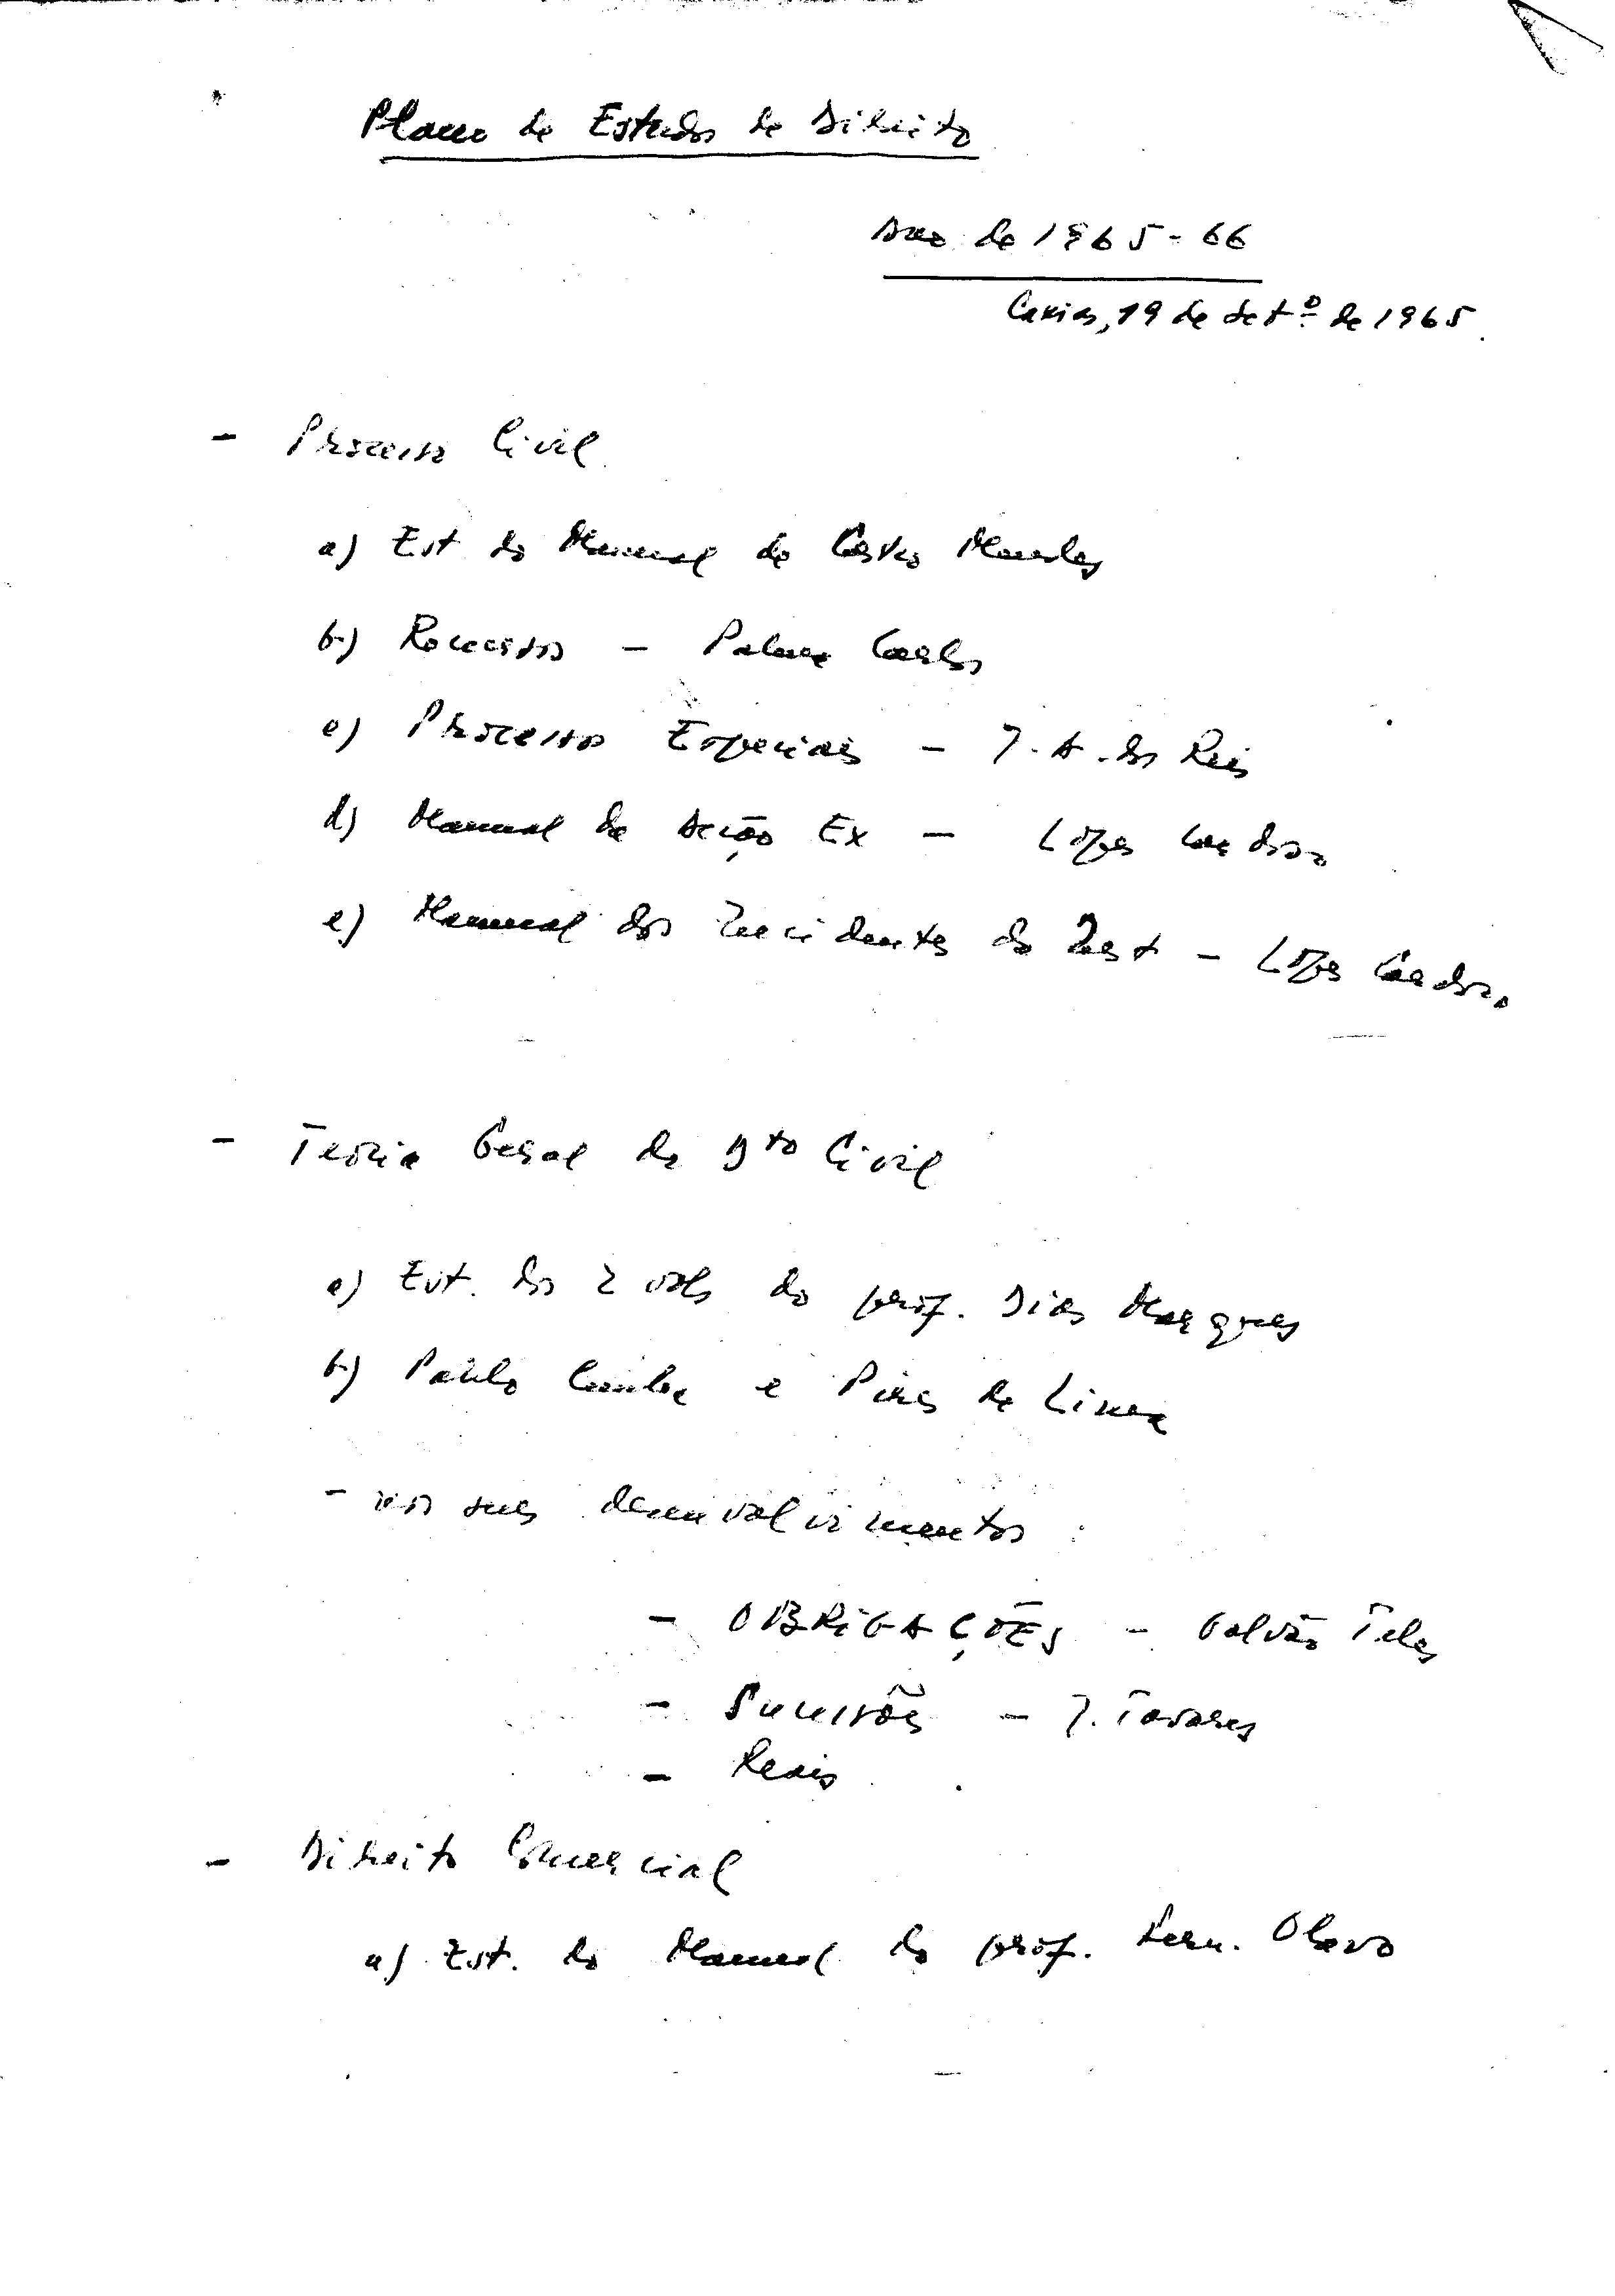 Plano de Estudos de Direito
Ano de 1965-66
Caxias, 19 de Setº de 1965.
- Processo Civil
a) Est do Manual de Castro Mendes
b) Recursos - Palma Carlos
c) Processos Especiais - J. A. dos Reis
d) Manual da Acção Ex - Lopes Cardoso
e) Manual dos Incidentes da Inst - Lopes Cardoso
- Teoria Geral do Dto Civil
a) Est. dos 2 vols do prof. Dias Marques
b) Paulo Cunha e Pires de Lima
- nos seus desenvolvimentos :
- OBRIGAÇÕES - Galvão Teles
- Sucessões - J. Tavares
- Reais
- Direito Comercial
a) Est. do Manual do prof. Fern. Olavo